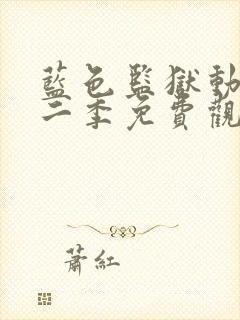 藍色監獄動
二季免費觀
蕭紅